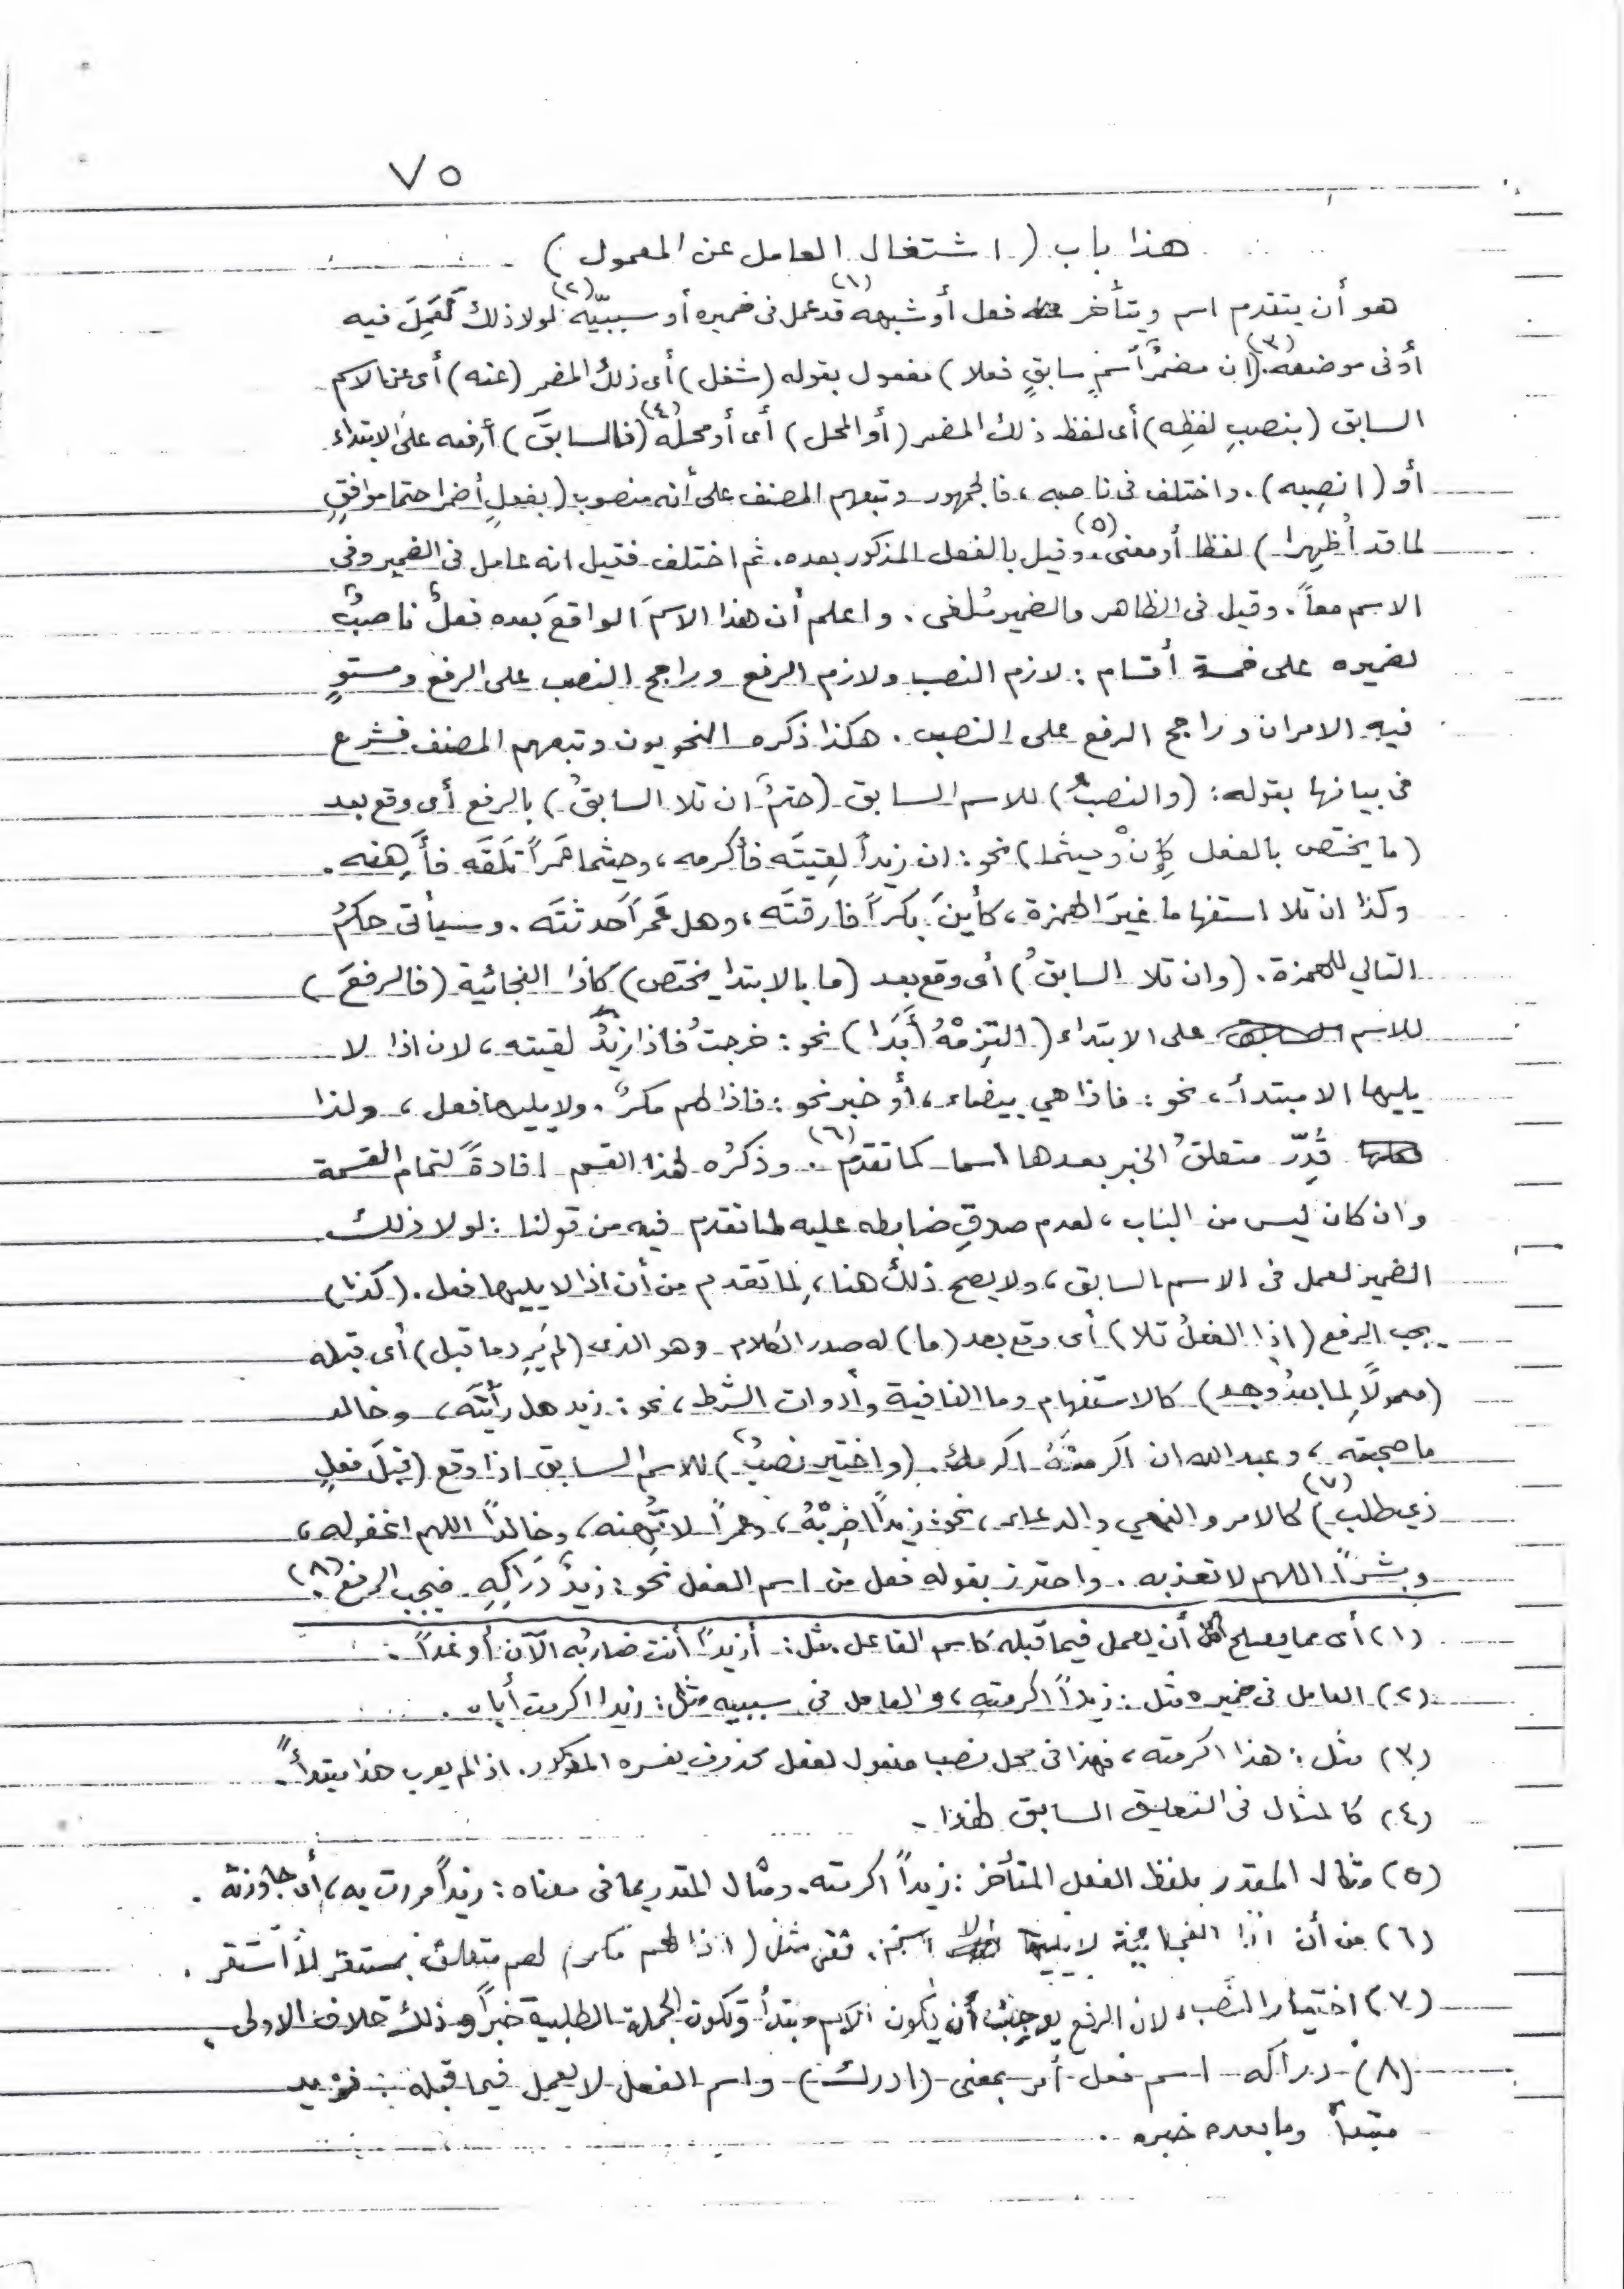 ٧٥
هذا باب (اشتغال العامل عن المعمول)
هو أن يتقدم اسم ويتأخر فعل أو شبهه (١) قد عمل في ضميره أو سببيّه (٢) لولا ذلك لَعَمِلَ فيه
أو في موضعه (٣). (ان مضمرُ اسمٍ سابقٍ فعلا) مفعول بقوله (شغل) أى ذلك المضمر (عنه) أى عن الاسم
السابق (بنصبِ لفظِه) أى لفظ ذلك المضمر (أو المحل) أى أو محله (٤) (فالسابقَ) أرفعه على الابتداء
أو (انصِبه). واختلف في ناصبه، فالجمهور وتبعهم المصنف على أنه منصوب (بفعلٍ أضمرا حتما موافقٍ
لما قد أُظهِرا) لفظا أو معنى (٥). وقيل بالفعل المذكور بعده. ثم اختلف فقيل انه عامل في الضمير وفي
الاسم معاً. وقيل في الظاهر والضمير مُلغى. واعلم أن هذا الاسمَ الواقعَ بعده فعلٌ ناصبٌ
لضميره على خمسة أقسام: لازم النصب ولازم الرفع وراجح النصب على الرفع ومستوٍ
فيه الامران وراجح الرفع على النصب. هكذا ذكره النحويون وتبعهم المصنف فشرع
في بيانها بقوله: (والنصبُ) للاسم السابق (حتمٌ ان تلا السابقُ) بالرفع أى وقع بعد
(ما يختص بالفعل كإِنْ وحيثما) نحو: ان زيداً لقيتَه فأكرمه، وحيثما عَمراً تلقَه فأَهِنه.
وكذا ان تلا استفهاما غيرَ الهمزة، كأينَ بكراً فارقتَه، وهل عَمراً حدثتَه. وسيأتى حكمُ
التالي للهمزة. (وان تلا السابقُ) أى وقع بعد (ما بالابتدا يختص) كاذا الفجائية (فالرفعَ)
للاسم على الابتداء (التَزِمْهُ أَبَدَا) نحو: خرجتُ فاذا زيدٌ لقيته، لان اذا لا
يليها الا مبتدأ، نحو: فاذا هي بيضاء، أو خبر نحو: فاذا لهم مكرٌ. ولا يليها فعل، ولذا
قُدِّرَ متعلقُ الخبر بعدها اسما كما تقدّم (٦). وذكرُه لهذا القسم افادةً لتمام القسمة
وان كان ليس من الباب، لعدم صدقِ ضابطه عليه لما تقدم فيه من قولنا: لولا ذلك
الضمير لعمل في الاسم السابق، ولا يصح ذلك هنا، لِما تقدم من أن اذا لا يليها فعل. (كذا)
يجب الرفع (اذا الفعلُ تلا) أى وقع بعد (ما) له صدر الكلام وهو الذى (لم يَرِد ما قبل) أى قبله
(معمولاً لِما بعدُ وجد) كالاستفهام وما النافية وأدوات الشرط، نحو: زيد هل رأيتَه، وخالد
ما صحبته، وعبد الله ان اكرمتَهُ اكرمك. (واختير نصبٌ) للاسم السابق اذا وقع (قبلَ فعلٍ
ذي طلب) (٧) كالامر والنهي والدعاء، نحو: زيداً اضرِبْهُ، وعمراً لا تُهِنه، وخالداً اللهم اغفر له،
وبشراً اللهم لا تعذبه. واحترز بقوله فعل من اسم الفعل نحو: زيدٌ دَراكِهِ. فيجب الرفع (٨).
(١) أى مما يصلح أن يعمل فيما قبله كاسم الفاعل. مثل: أزيداً أنت ضاربُه الآن أو غداً.
(٢) العامل في ضميره مثل: زيداً اكرمته، والعامل في سببيه مثل: زيدا اكرمت أباه.
(٣) مثل: هذا اكرمته، فهذا في محل نصب مفعول لفعل محذوف يفسره المذكور. اذا لم يعرب هذا مبتدأً.
(٤) كالمثال في التعليق السابق لهذا.
(٥) مثال المقدر بلفظ الفعل المتأخر: زيداً اكرمته. ومثال المقدر بما في معناه: زيداً مررت به، أى جاوزته.
(٦) من أن اذا الفجائية لا يليها الا اسم. ففى مثل (اذا لهم مكر) لهم متعلق بمستقر لا استقر.
(٧) اختيار النصب، لان الرفع يوجب أن يكون الاسم مبتدأ وتكون الجملة الطلبية خبراً وذلك خلاف الاولى.
(٨) دراكه اسم فعل أمر بمعنى (ادرك) واسم الفعل لا يعمل فيما قبله. فزيد
مبتدأ وما بعده خبره.